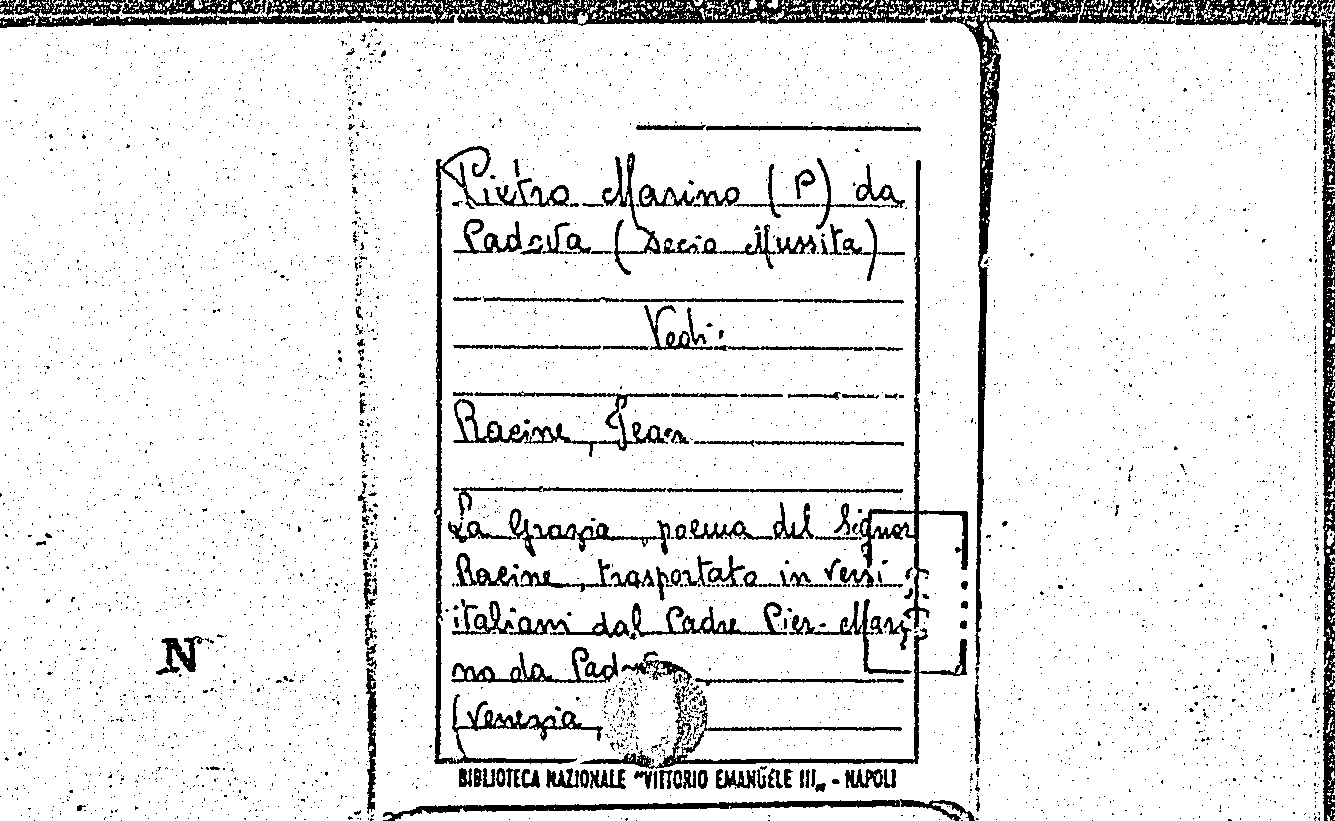 Pietro Marino (P) da
Padova (Decio Mussita)
Vedi:
Racine, Jean
La Grazia, poema del Signor
Racine, trasportato in versi
italiani dal Padre Pier-Mari
no da
(Venezia,
N
BIBLIOTECA NAZIONALE "VITTORIO EMANUELE III„ - NAPOLI